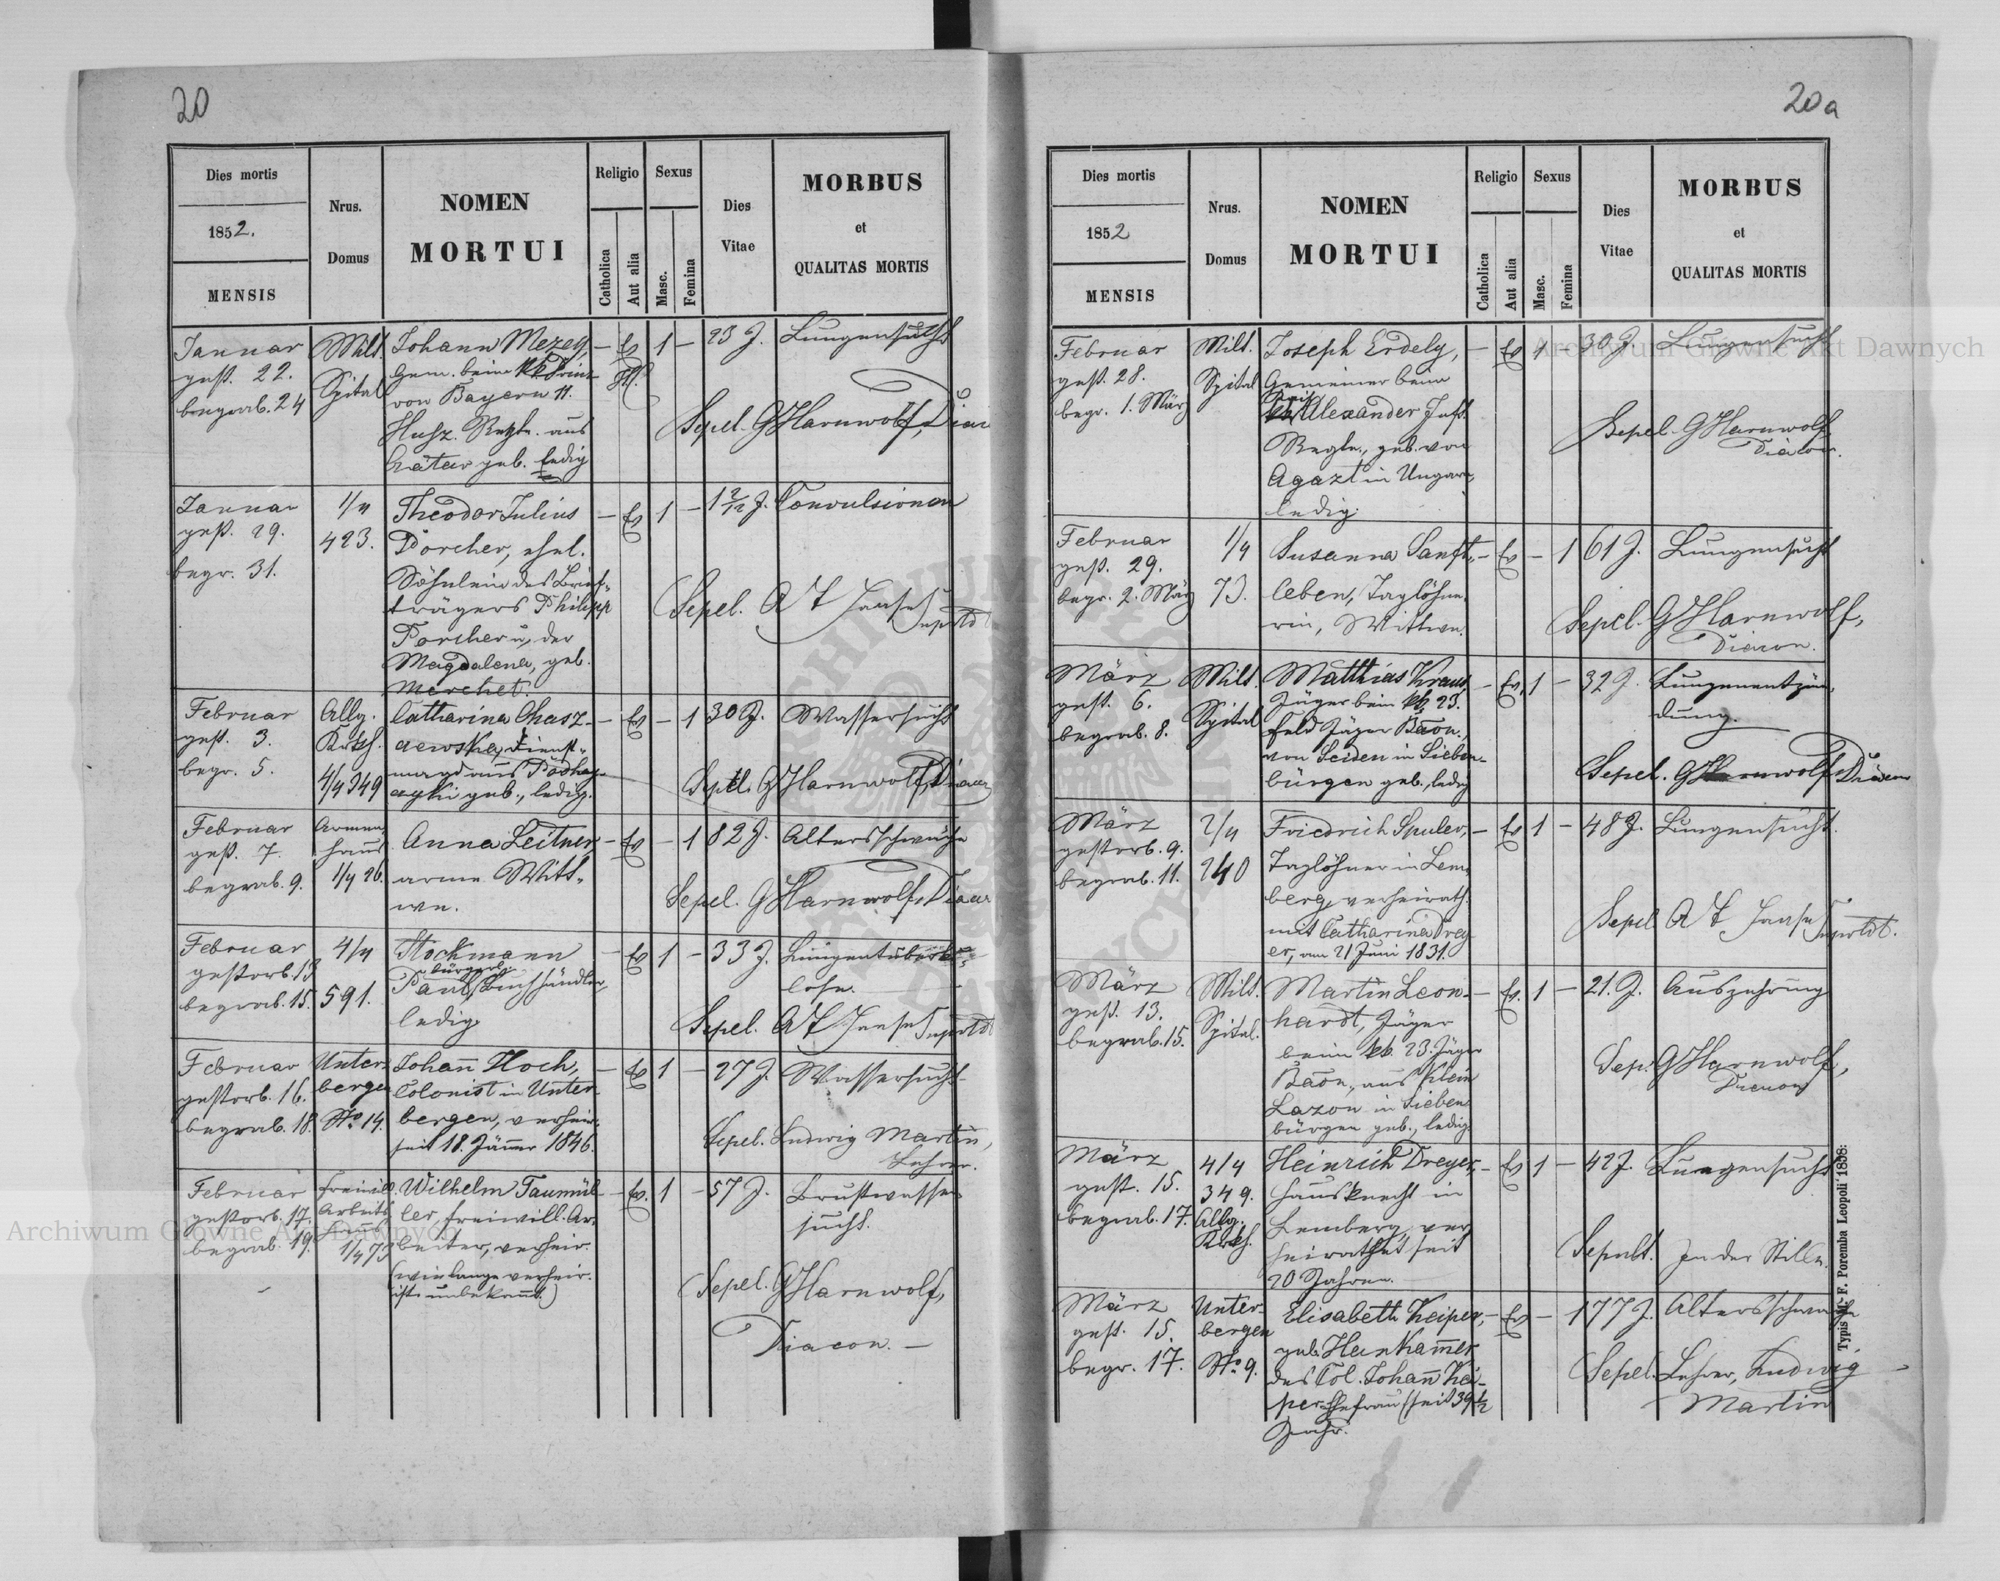 20
Dies mortis
1852.
MENSIS
Nrus.
Domus
NOMEN
MORTUI
Religio
Catholica
Aut alia
Sexus
Masc.
Femina
Dies
Vitae
MORBUS
et
QUALITAS MORTIS
Januar
gest. 22.
begrab. 24
Milt.
Spital
Johann Mezey,
Gem. beim kk Prinz
von Bayern 11.
Husz. Regte. aus
geb. ledig
– Ev 1 – 23 J. Lungensucht
Sepel. G Harnwolf, Diac
Januar
gest. 29.
begr. 31.
1/4
423.
Theodor Julius
Porcher, ehel.
Söhnlein des Brief-
trägers Philipp
Porcher u. der
Magdalena, geb.
Merchet.
– Ev 1 – 1 2/12 J. Convulsionen
Sepel. A T Haase Suprtdt
Februar
gest. 3.
begr. 5.
Allg.
Krkh.
4/4 349
Catharina Chasz-
czewska, Dienst-
magd aus Podhay-
czyki geb., ledig.
– Ev – 1 30 J. Wassersucht
Sepel. G Harnwolf, Diacon
Februar
gest. 7.
begrab. 9.
Armen
haus
1/4 26.
Anna Leitner
arme Witt-
we.
– Ev – 1 82 J. Altersschwäche
Sepel. G Harnwolf, Diacon
Februar
gestorb. 13
begrab. 15.
4/4
591.
Stockmann
Paul, bürgerl.
Buchhändler,
ledig
– Ev 1 – 33 J. Lungentuberku-
lose.
Sepel. A T Haase Suprtdt
Februar
gestorb. 16.
begrab. 18.
Unter-
bergen
No. 14.
Johann Hoch,
Colonist in Unter-
bergen, verheir.
seit 18. Jänner 1846.
– Ev 1 – 27 J. Wassersucht
Sepel. Ludwig Martin,
Lehrer.
Februar
gestorb. 17.
begrab. 19.
freiwill.
Arbeits
haus
1/4 73
Wilhelm Taumül-
ler, freiwill. Ar-
beiter, verheir.
(wie lange verheir.
ist unbekannt.)
– Ev. 1 – 57 J. Brustwasser
sucht.
Sepel. G Harnwolf,
Diacon. –
20a
Dies mortis
1852
MENSIS
Nrus.
Domus
NOMEN
MORTUI
Religio
Catholica
Aut alia
Sexus
Masc.
Femina
Dies
Vitae
MORBUS
et
QUALITAS MORTIS
Februar
gest. 28.
begr. 1. März
Milt.
Spital
Joseph Erdely,
Gemeiner beim
Alexander Inft.
Regte., geb. von
Agazt in Ungarn,
ledig.
– Ev 1 – 30 J. Lungensucht
Sepel. G Harnwolf
Diacon.
Februar
gest. 29.
begr. 2. März
1/4
73.
Susanna Sanft-
leben, Taglöhne-
rin, Wittwe.
– Ev – 1 61 J. Lungensucht
Sepel. G Harnwolf,
Diacon.
März
gest. 6.
begrab. 8.
Milt.
Spital
Matthias Kraus,
Jäger beim kk. 23.
Feld Jäger Baon.,
von Seiden in Sieben-
bürgen geb., ledig
– Ev. 1 – 32 J. Lungenentzün-
dung.
Sepel. G Harnwolf Diacon
März
gestorb. 9.
begrab. 11.
2/4
240
Friedrich Spuler,
Taglöhner in Lem-
berg, verheirath.
mit Catharina Drey-
er, am 21 Juni 1831.
– Ev 1 – 48 J. Lungensucht.
Sepel A T Haase Suprtdt.
März
gest. 13.
begrab. 15.
Milt.
Spital.
Martin Leon-
hardt, Jäger
beim kk. 23. Jäger
Baon., aus Klein
Lazon in Sieben-
bürgen geb., ledig.
– Ev. 1 – 21. J. Auszehrung
Sep: G Harnwolf,
Diacon
März
gest. 15.
begrab. 17.
4/4
349.
Allg.
Krkh.
Heinrich Dreyer,
Hausknecht in
Lemberg, ver-
heirathet seit
20 Jahren.
– Ev 1 – 42 J. Lungensucht
Sepult. In der Stille.
März
gest. 15.
begr. 17.
Unter-
bergen
No. 9.
Elisabeth Keiper,
geb. Heinkammer
des Col. Johann Kei-
per Ehefrau (seit 39 1/2
Jahr.
– Ev – 1 77 J. Altersschwäche
Sepel. Lehrer, Ludwig
Martin
Typis M. F. Poremba Leopoli 1858:
Archiwum Główne Akt Dawnych
Archiwum Główne Akt Dawnych